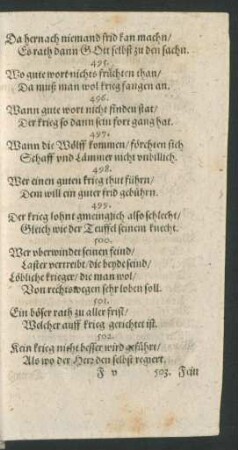 Da hernach niemand frid kan machn/
Es rath dann Gott selbst zu den sachn.
495.
Wo gute wort nichts früchten than/
Da muß man wol krieg fangen an.
496.
Wann gute wort nicht finden stat/
Der krieg so dann sein fort gang hat.
497.
Wann die Wölff kommen/ förchten sich
Schaff vnd Lämmer nicht vnbillich.
498.
Wer einen guten krieg thut führn/
Dem will ein guter frid gebührn.
499.
Der krieg lohnt gmeinglich also schlecht/
Gleich wie der Teuffel seinem knecht.
500.
Wer vberwindet seinen feind/
Laster vertreibt/ die beyde seind/
Löbliche krieger/ die man wol/
Von rechts wegen sehr loben soll.
501.
Ein böser rath zu aller frist/
Welcher auff krieg gerichtet ist.
502.
Kein krieg nicht besser wird geführt/
Als wo der Herr den selbst regiert.
F v 503. Fein